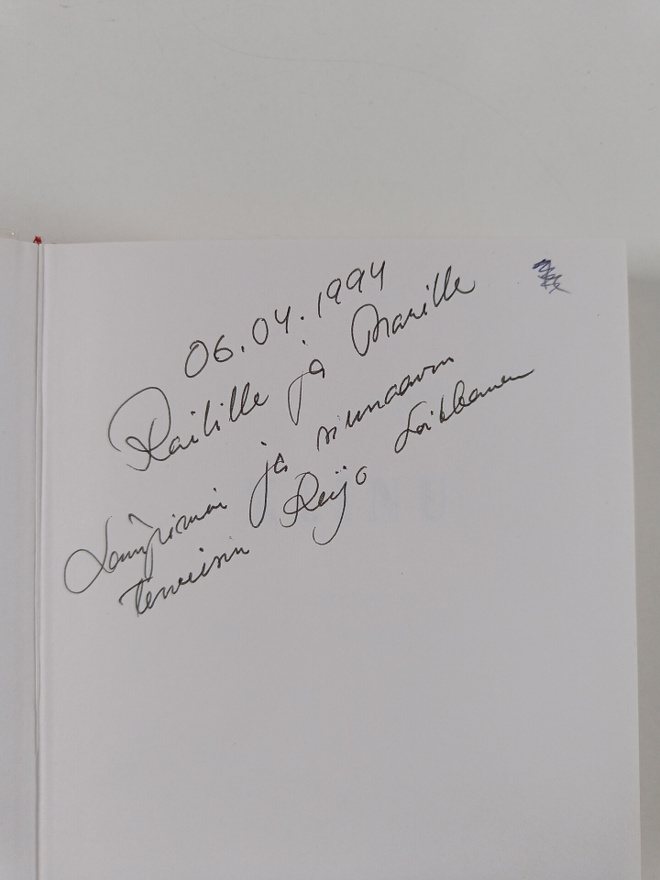 06.04.1994
Railille ja Maville
Lämpimin ja siunaavin
terveisin Reijo Loikkanen